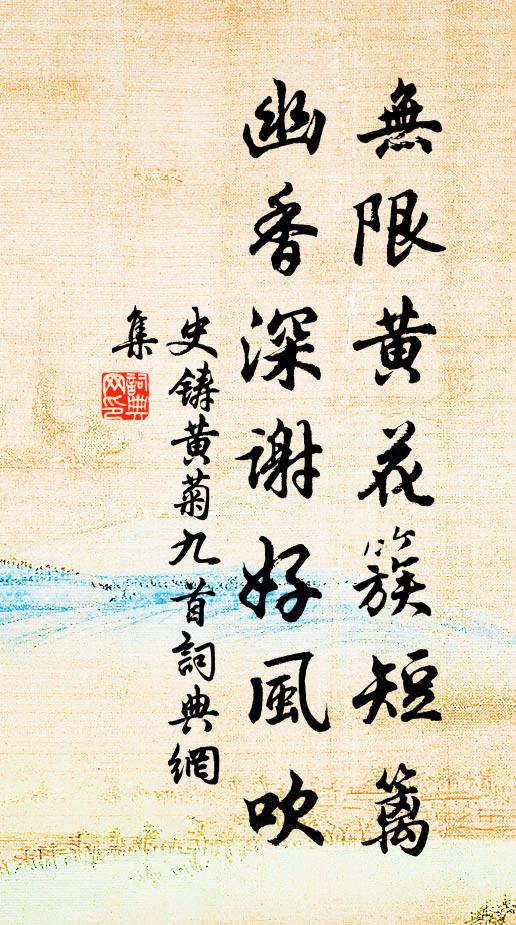 無限黄花簇短籬
幽香深謝好風吹
史鑄黄菊九首詞典網
集
詞典
网印